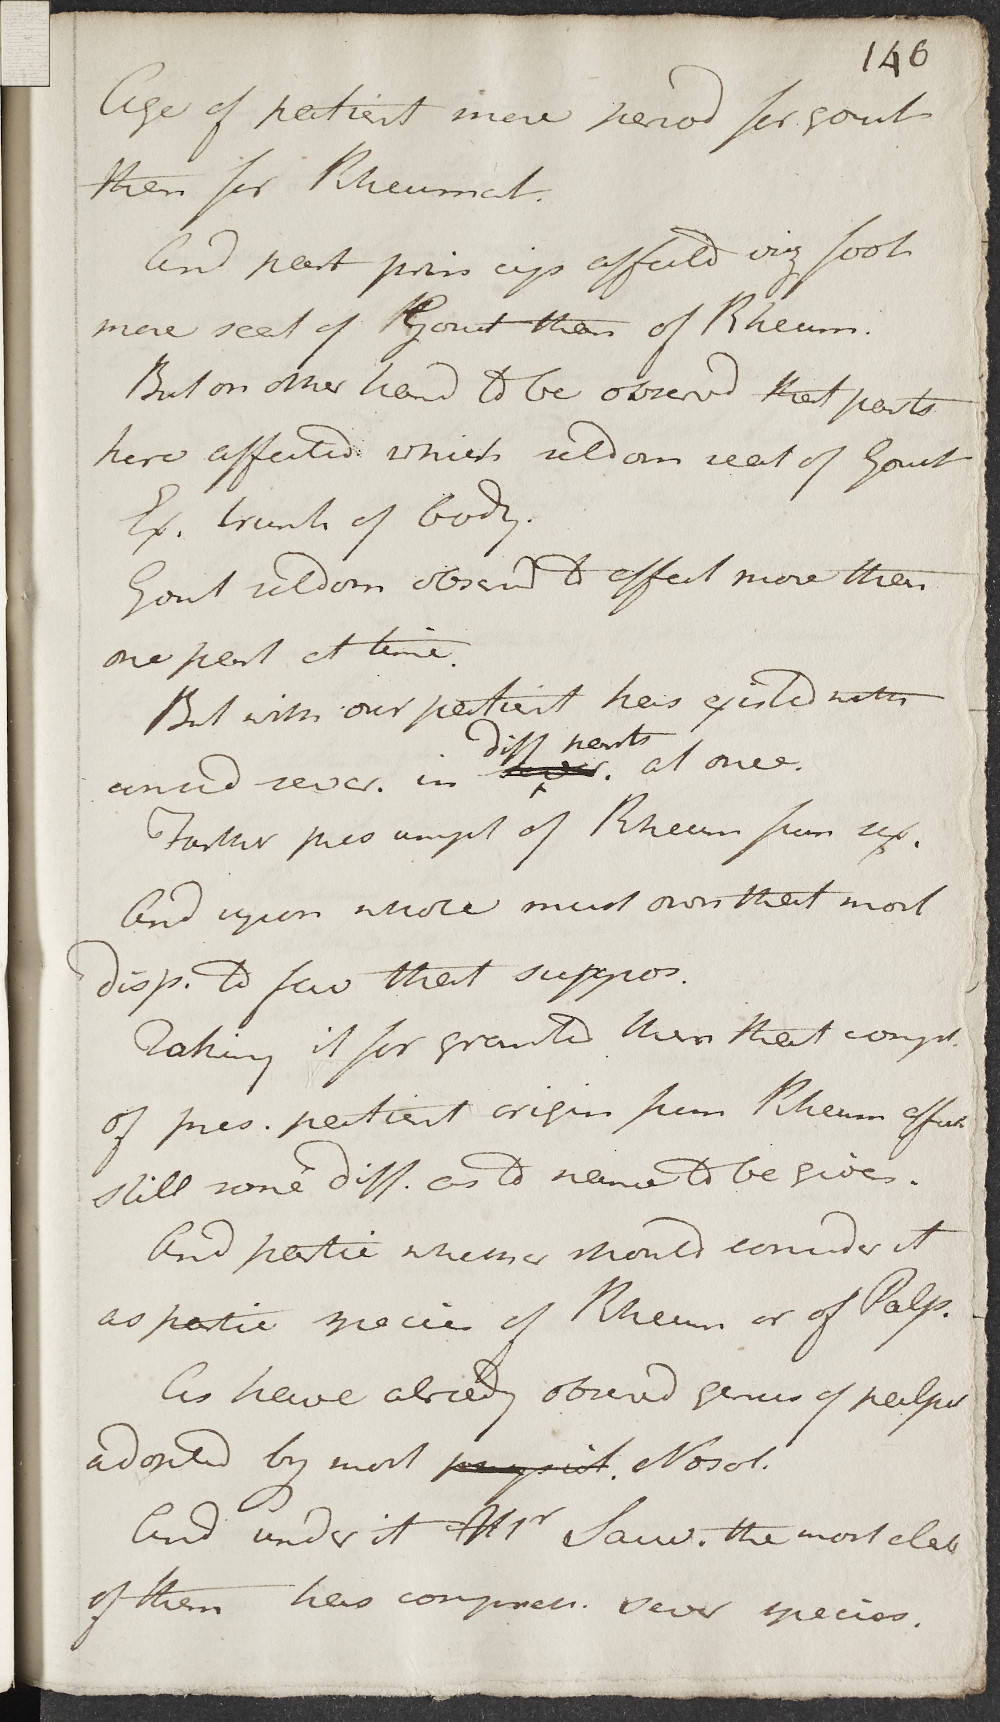 146
Age of patient more period for gout
than for Rheumat.
And part princip affectd viz foot
more seat of Gout than of Rheum.
But on other hand to be observd that parts
here affected which seldom seat of Gout
Ex. trunk of body.
Gout seldom observd to affect more than
one part at time.
But with our patient has existed with
consid sever. in diff parts at once.
Farther presumpt of Rheum from sex.
And upon whole must own that most
disp. to fav that suppos.
Taking it for granted then that compt.
of pres. patient origin from Rheum affect
still some diff. as to name to be given.
And partic whether should consider it
as partic species of Rheum or of Palp.
As have already observd genus of palpit
adopted by most physiol. Nosol.
And under it Mr Sauv. the most celeb
of them has compreh. sever species.